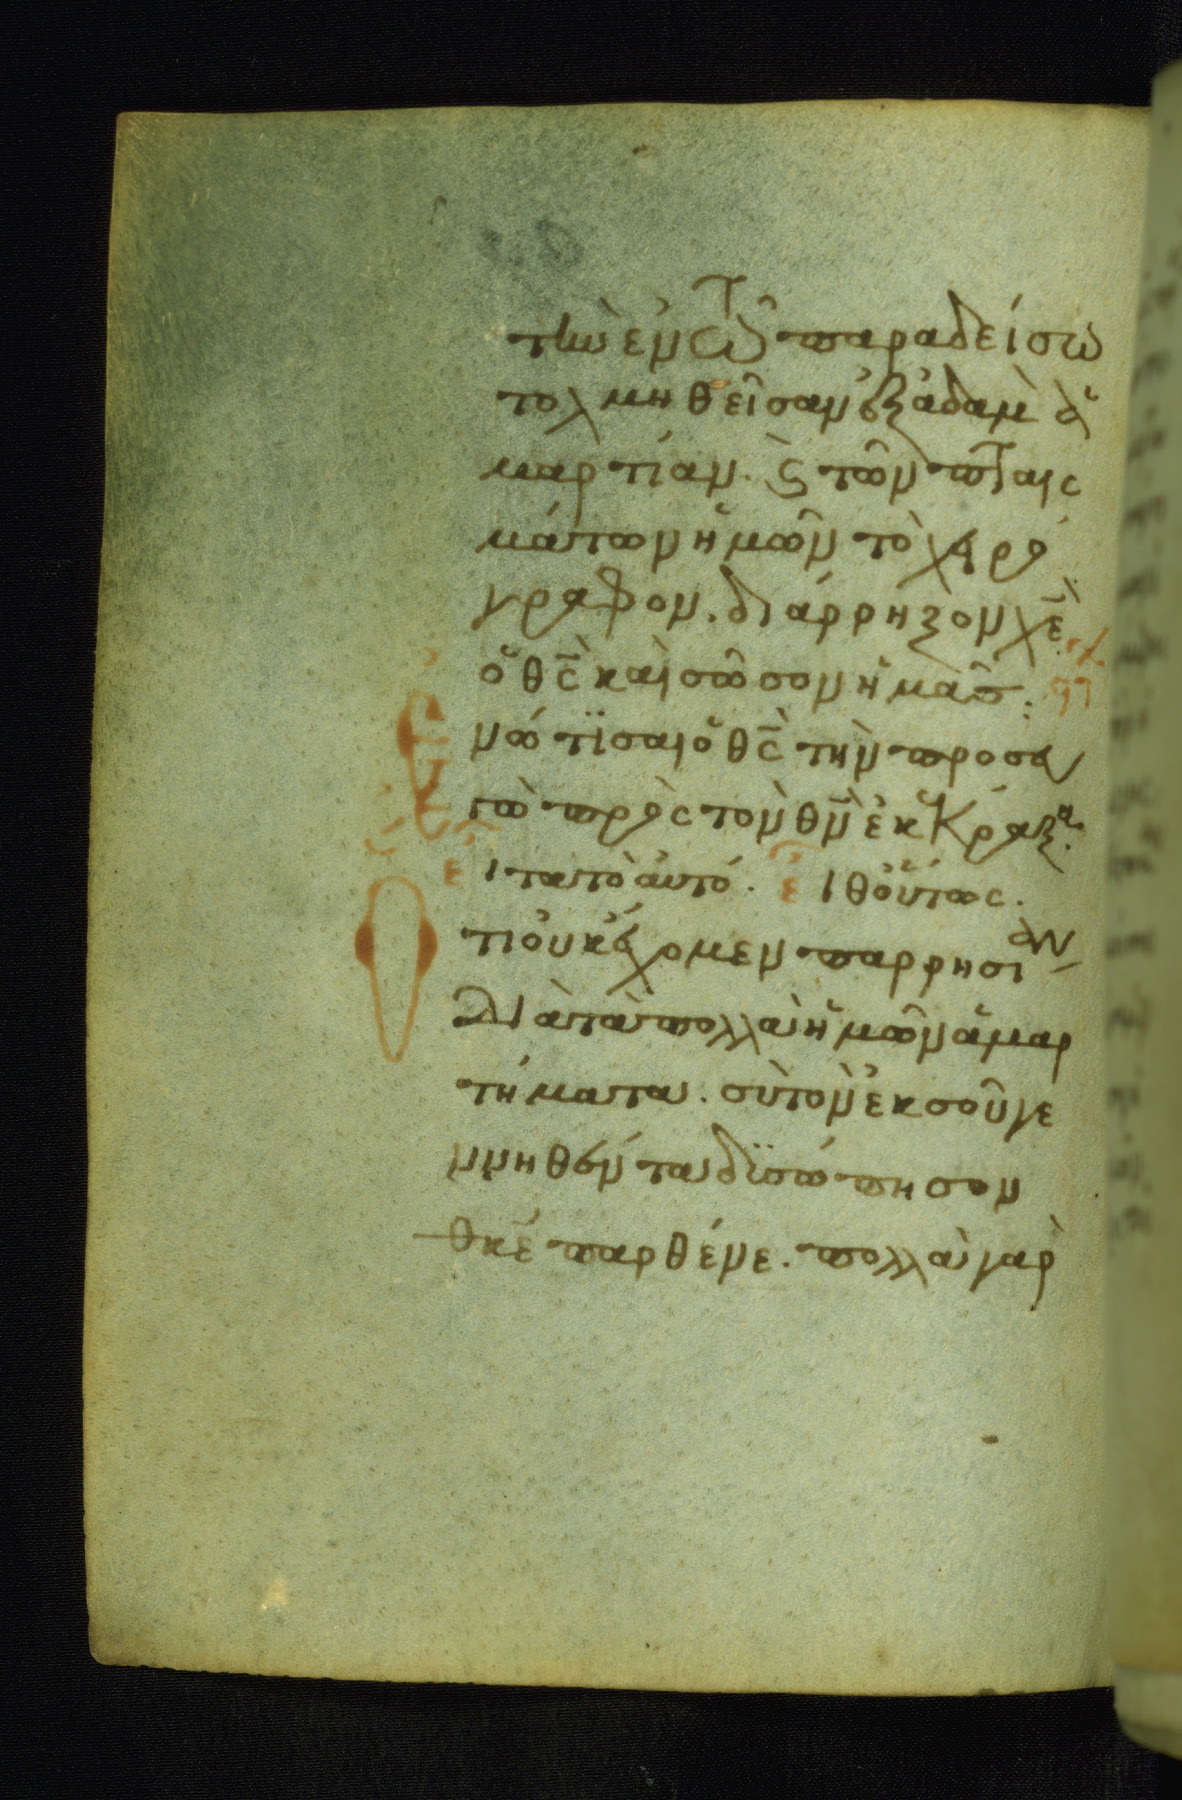 τὴν ἐν τῶ παραδείσω
τολμηθεῖσαν ἐξ ἀδὰμ ἁ
μαρτίαν. ϛ τῶν πταις
μάτων ἡμῶν τὸ χειρό
γραφον. διάρρηξον χὲ
ὁ θς καὶ σῶσον ἡμᾶς:
Ενώτισαι ὁ θς τὴν προσευ
Ἐγὼ πρὸς τὸν θν ἐκέκραξα
εἶτα τὸ αὐτό. εἶθ οὕτως.
Ὅτι οὐκ ἔχομεν παρρησίαν
διὰ τὰ πολλὰ ἡμῶν ἁμαρ
τήματα. σὺ τὸν ἐκ σοῦ γε
ννηθέντα δυσώπησον
θκε παρθένε. πολλὰ γὰρ